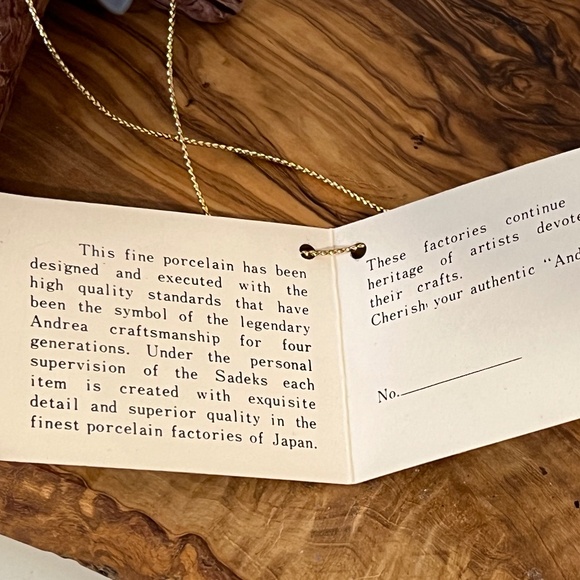 This fine porcelain has been
designed and executed with the
high quality standards that have
been the symbol of the legendary
Andrea craftsmanship for four
generations. Under the personal
supervision of the Sadeks each
item is created with exquisite
detail and superior quality in the
finest porcelain factories of Japan.
These factories continue
heritage of artists devote
their crafts.
Cherish your authentic "And
No.